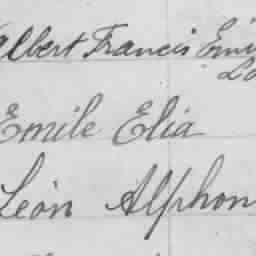 Albert Francis
Emile Elia
Léon Alphon